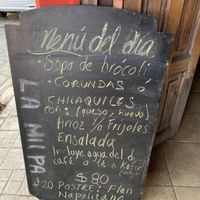 Menú del día
• Sopa de brócoli
• CORUNDAS ó
CHILAQUILES
con: (queso, huevo)
Arroz y/o Frijoles
Ensalada
Incluye agua del d
café o té o
$80
$20 POSTRE: Flan
Napolitano
LA MILPA